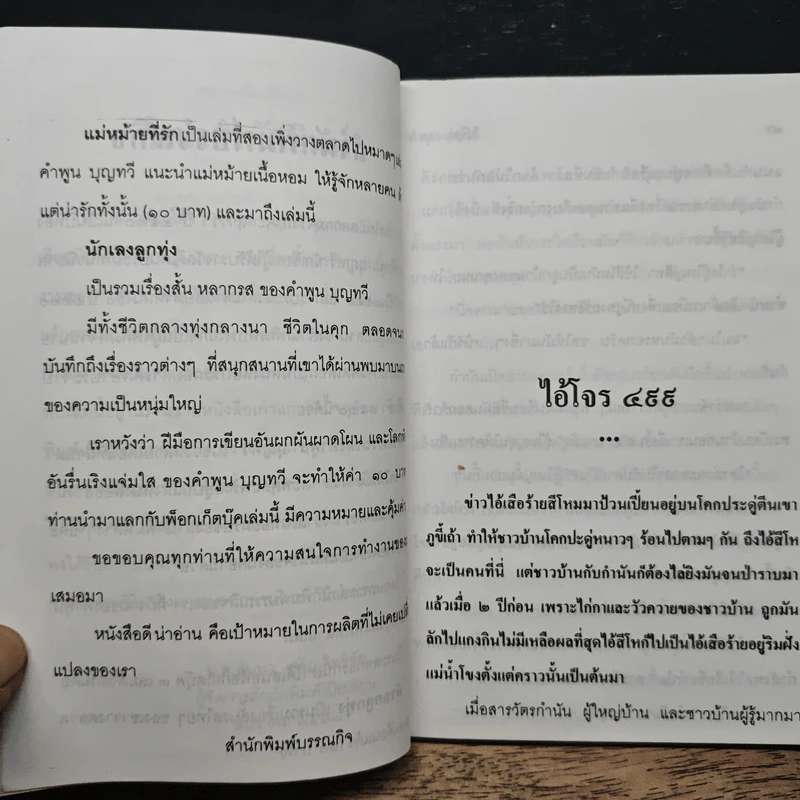 แม่หม้ายที่รัก เป็นเล่มที่สอง เพิ่งวางตลาดไปหมาดๆ
คำพูน บุญทวี แนะนำแม่หม้ายเนื้อหอม ให้รู้จักหลายคน
แต่น่ารักทั้งนั้น (๑๐ บาท) และมาถึงเล่มนี้
นักเลงลูกทุ่ง
เป็นรวมเรื่องสั้น หลากรส ของคำพูน บุญทวี
มีทั้งชีวิตกลางทุ่งกลางนา ชีวิตในคุก ตลอดจน
บันทึกถึงเรื่องราวต่างๆ ที่สนุกสนานที่เขาได้ผ่านพบมาบน
ของความเป็นหนุ่มใหญ่
เราหวังว่า ฝีมือการเขียนอันผกผันผาดโผน และโลก
อันรื่นเริงแจ่มใส ของคำพูน บุญทวี จะทำให้ค่า ๑๐ บาท
ท่านนำมาแลกกับพ็อกเก็ตบุ๊คเล่มนี้ มีความหมายและคุ้มค่า
ขอขอบคุณทุกท่านที่ให้ความสนใจการทำงานของ
เสมอมา
หนังสือดี น่าอ่าน คือเป้าหมายในการผลิตที่ไม่เคยเปลี่
แปลงของเรา
สำนักพิมพ์บรรณกิจ
ไอ้โจร ๔๙๙
...
ข่าวไอ้เสือร้ายสีโหมมาป้วนเปี้ยนอยู่บนโคกประดู่ตีนเขา
ภูขี้เถ้า ทำให้ชาวบ้านโคกปะดู่หนาวๆ ร้อนไปตามๆ กัน ถึงไอ้สีโห
จะเป็นคนที่นี่ แต่ชาวบ้านกับกำนันก็ต้องไล่ยิงมันจนป่าราบมา
แล้วเมื่อ ๒ ปีก่อน เพราะไก่กาและวัวควายของชาวบ้าน ถูกมัน
ลักไปแกงกินไม่มีเหลือผลที่สุดไอ้สีโหก็ไปเป็นไอ้เสือร้ายอยู่ริมฝั่ง
แม่น้ำโขงตั้งแต่คราวนั้นเป็นต้นมา
เมื่อสารวัตรกำนัน ผู้ใหญ่บ้าน และชาวบ้านผู้รู้มากมา